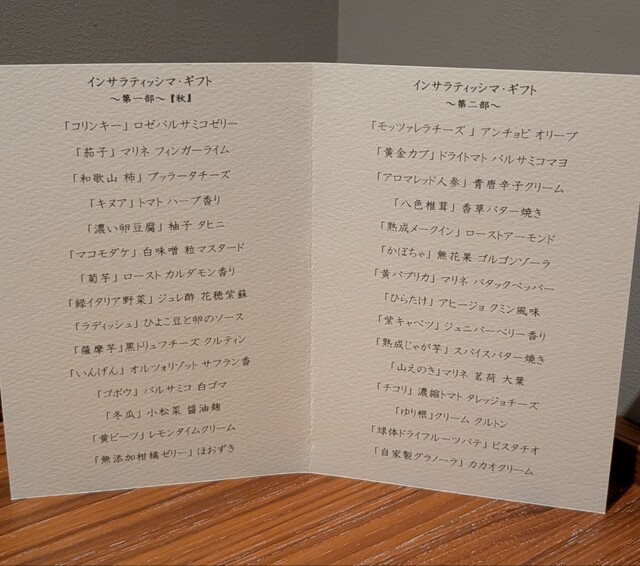 インサラティッシマ・ギフト
〜第一部〜『秋』
「コリンキー」ロゼバルサミコゼリー
「茄子」マリネ フィンガーライム
「和歌山 柿」ブッラータチーズ
「キヌア」トマト ハーブ香り
「濃い卵豆腐」柚子 タヒニ
「マコモダケ」白味噌 粒マスタード
「菊芋」ロースト カルダモン香り
「緑イタリア野菜」ジュレ酢 花穂紫蘇
「ラディッシュ」ひよこ豆と卵のソース
「薩摩芋」黒トリュフチーズ クルティン
「いんげん」オルツォリゾット サフラン香
「ゴボウ」バルサミコ 白ゴマ
「冬瓜」小松菜 醤油麹
「黄ビーツ」レモンタイムクリーム
「無添加柑橘ゼリー」ほおずき
インサラティッシマ・ギフト
〜第二部〜
「モッツァレラチーズ 」アンチョビ オリーブ
「黄金カブ」ドライトマト バルサミコマヨ
「アロマレッド人参」青唐辛子クリーム
「八色椎茸」香草バター焼き
「熟成メークイン」ローストアーモンド
「かぼちゃ」無花果 ゴルゴンゾーラ
「黄パプリカ」マリネ バタックペッパー
「ひらたけ」アヒージョ クミン風味
「紫キャベツ」ジュニパーベリー香り
「熟成じゃが芋」スパイスバター焼き
「山えのき」マリネ 茗荷 大葉
「チコリ」濃縮トマト タレッジョチーズ
「ゆり根」クリーム クルトン
「球体ドライフルーツパテ」ピスタチオ
「自家製グラノーラ」カカオクリーム